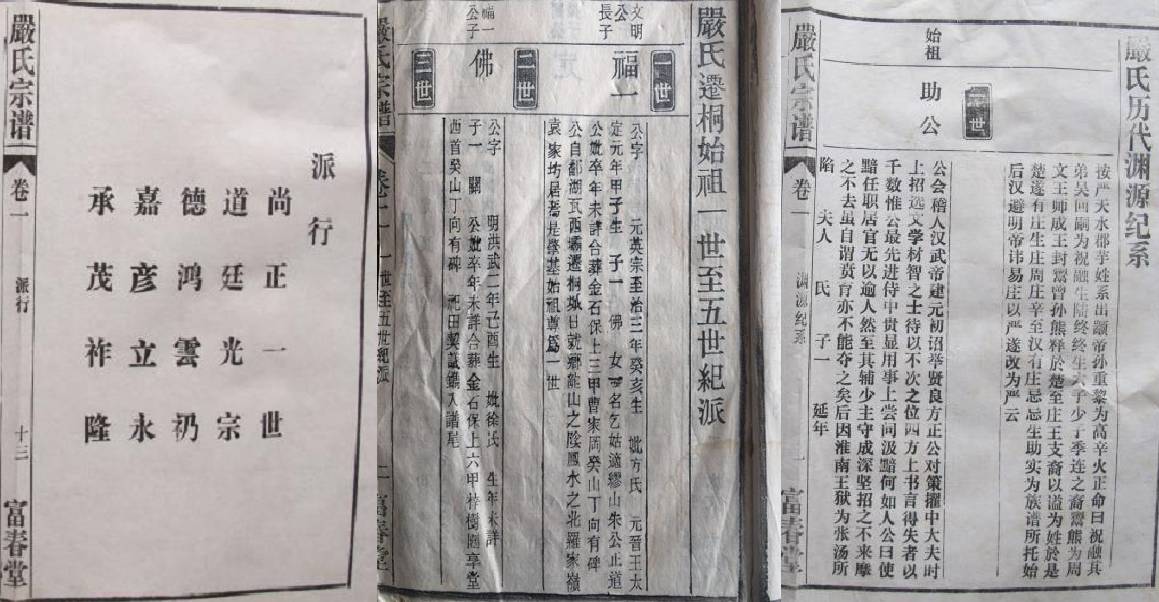 嚴氏历代渊源纪系
按严天水郡芈姓系出颛帝孙重黎为高辛火正命曰祝融其
弟吴回嗣为祝融生陆终终生六子少子季连之裔鬻熊为周
文王师成王封鬻曾孙熊释於楚至庄王支裔以谥为姓於是
楚遂有庄生庄周庄辛至汉有庄忌忌生助实为族谱所托始
后汉避明帝讳易庄以严遂改为严云
一世
始祖
助公
公会稽人汉武帝建元初诏举贤良方正公对策擢中大夫时
上招选文学材智之士待以不次之位四方上书言得失者以
千数惟公最先进侍中贵显用事上尝问汲黯何如人公曰使
黯任职居官无以逾人然至其辅少主守成深坚招之不来麾
之不去虽自谓贲育亦不能夺之矣后因淮南王狱为张汤所
陷 夫人 氏 子一 延年
嚴氏宗谱 卷一 渊源纪系 一
嚴氏遷桐始祖一世至五世紀派
一世
文明
公
長子
福一
公字 元英宗至治三年癸亥生 妣方氏 元晉王太
定元年甲子生 子一 佛 女一名乙姑適繆山朱公止道
公妣卒年未詳合葬金石保上三甲曹家岡癸山丁向有碑
公自鄱湖瓦西壩遷桐城日就鄉龍山之陰鳳水之北羅家嶺
袁家坊居焉是肇基始祖尊爲一世
二世
福一
公子
佛
公字 明洪武二年己酉生 妣徐氏 生年未詳
子一 關 公妣卒年未詳合葬金石保上六甲梓樹園享堂
西首癸山丁向有碑 祀田契議鐫入譜尾
三世
嚴氏宗譜 卷二 一世至五世纪派 二 富春堂
派行
尚正一世
道廷光宗
德鸿雲礽
嘉彦立永
承茂祚隆
嚴氏宗谱 卷一 派行 十三 富春堂
富春堂